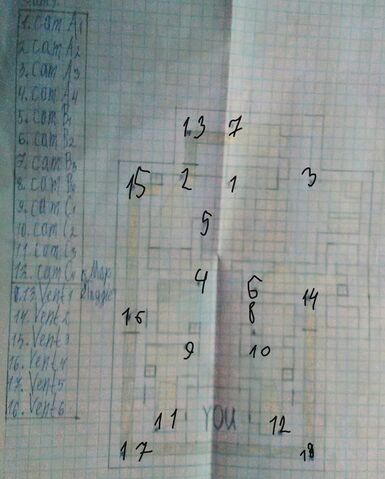 1. cam A1
2 cam A2
3. cam A3
4. cam A4
5. cam B1
6. cam B2
7. cam B3
8. cam B4
9. cam C1
10. cam C2
11. cam C3
12. cam C4
13. Vent 1
14. Vent 2
15. Vent 3
16. Vent 4
17. Vent 5
18. Vent 6
13 7
15 2 1 3
5
4 6 14
16 8
9 10
11 YOU 12
17 18